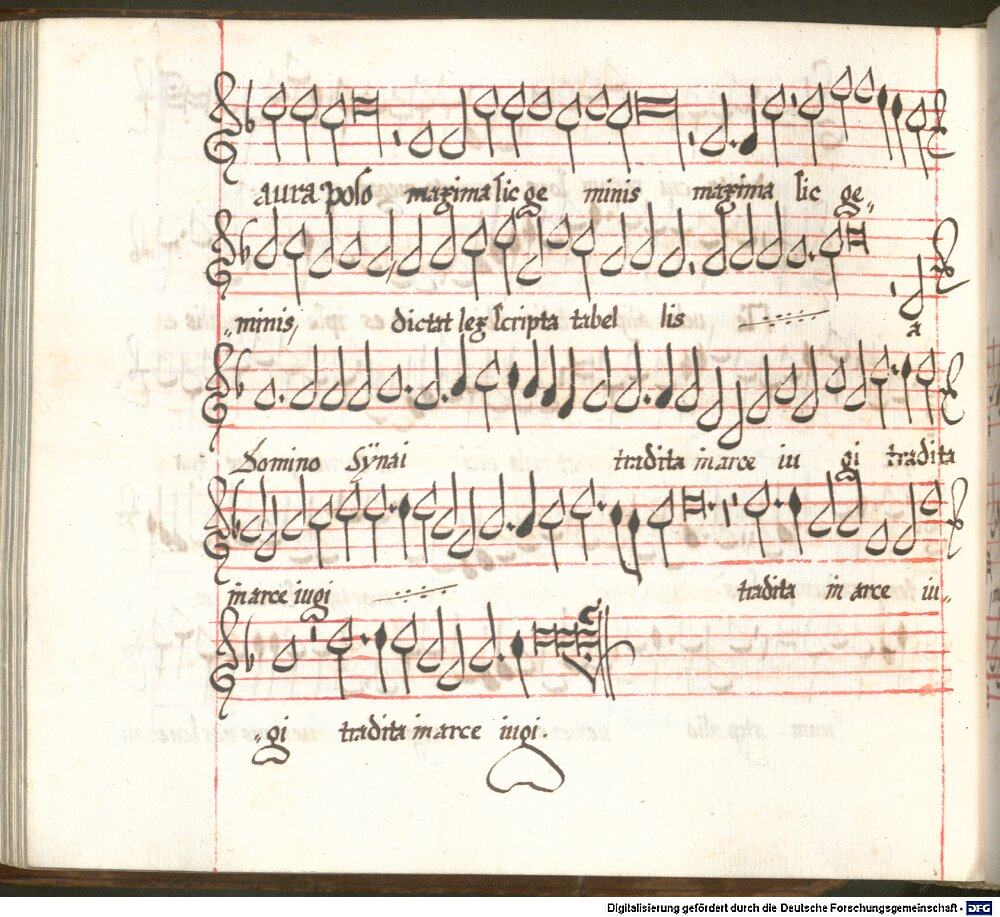 aura polo maxima sic ge minis maxima sic ge„
„minis, dictat lex scripta tabel lis a
Domino Sÿnai tradita in arce iu gi tradita
in arce iugi tradita in arce iu„
„gi tradita in arce iugi.
Digitalisierung gefördert durch die Deutsche Forschungsgemeinschaft - DFG